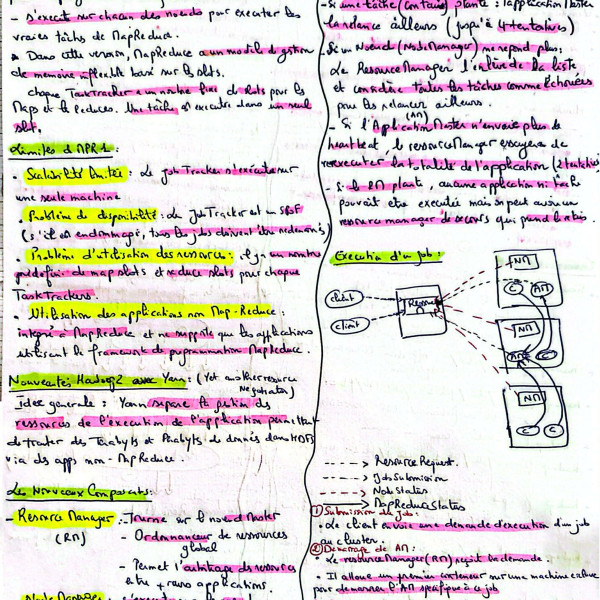 - s'execute sur chacun des noeuds pour executer les
vraies tâches de MapReduce.
* Dans cette version, MapReduce a un modèle de gestion
de memoire inflexible basé sur les slots.
chaque TaskTracker a un nombre fixe de slots pour les
Maps et le Reduces. Une tâche est executée dans un seul
slot.
Limites d MPR1:
- Scalabilité limitée: Le job Tracker s'execute sur
une seule machine
- Problème de disponibilité: Le JobTracker est un SPoF
(s'il est endommagé, tous les jobs doivent être redemarrés)
- Problème d'utilisation des ressources: il y a un nombre
predefini de map slots et reduce slots pour chaque
TaskTrackers.
- Utilisation des applications non Map-Reduce:
integré à MapReduce et ne supporte que les applications
utilisant le framework de programmation MapReduce.
Nouveautés Hadoop2 avec Yarn: (Yet another resource
Negotiator)
Idée generale: Yarn separe la gestion des
ressources de l'execution de l'application permettant
de traiter des Terabyts et Petabyts de donnés dans HDFS
via des apps non-MapReduce.
Les Nouveaux Composants:
- Resource Manager
(RM)
- Tourne sur le noeud Master
- Ordonnanceur de ressources
global
- Permet l'arbitrage des ressources
entre applications.
- Node Manager
- Si une tâche (container) plante: l'application Master
la relance ailleurs (jusqu'à 4 tentatives)
- Si un Noeud (Node Manager) ne repond plus:
Le Resource Manager l'enlève de la liste
et considère toutes les tâches comme échouées
pour les relancer ailleurs.
(AM)
- Si l'Application Master n'envoie plus de
heartbeat, le resource Manager essayera de
reexecuter la totalité de l'application (2 tentatives)
- Si le RM plante, aucune application ni tâche
pourrait etre executée mais on peut avoir un
resource manager de secours qui prend la
Execution d'un job:
client
client
Resource
M
NM
C
AM
NM
AM
C
NM
C
C
----> Resource Request.
----> Job Submission
----> Node Status
MapReduce Status
① Submission du Job:
- Le client envoie une demande d'execution d'un job
au cluster.
② Démarrage de AM:
- Le resource Manager (RM) reçoit la demande.
- Il alloue un premier conteneur sur une machine
pour demarrer l'AM specifique à ce job